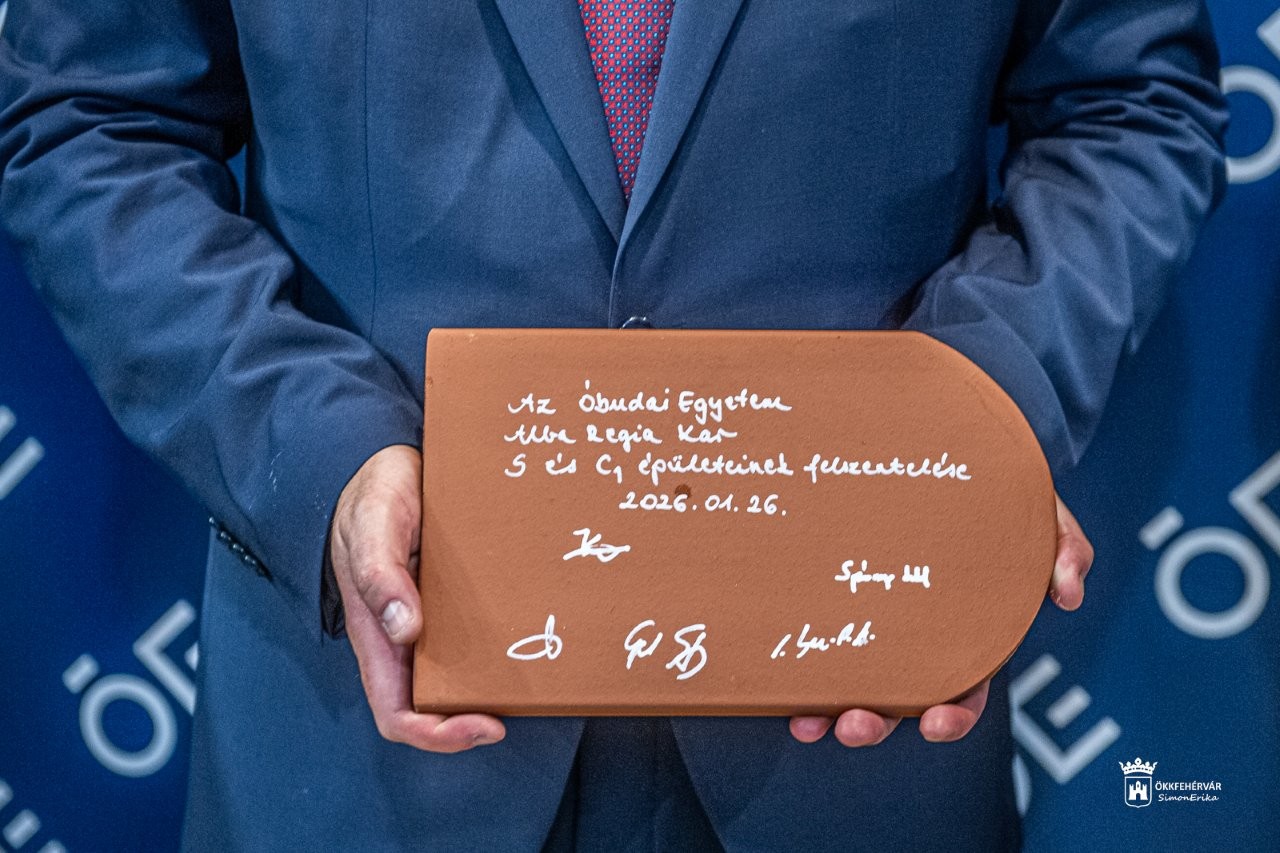 Az Óbudai Egyetem
Alba Regia Kar
S és C1 épületeinek felszentelése
2026.01.26.
ÓE
ÓE
ÓE
ÖKKFEHÉRVÁR
SimonErika